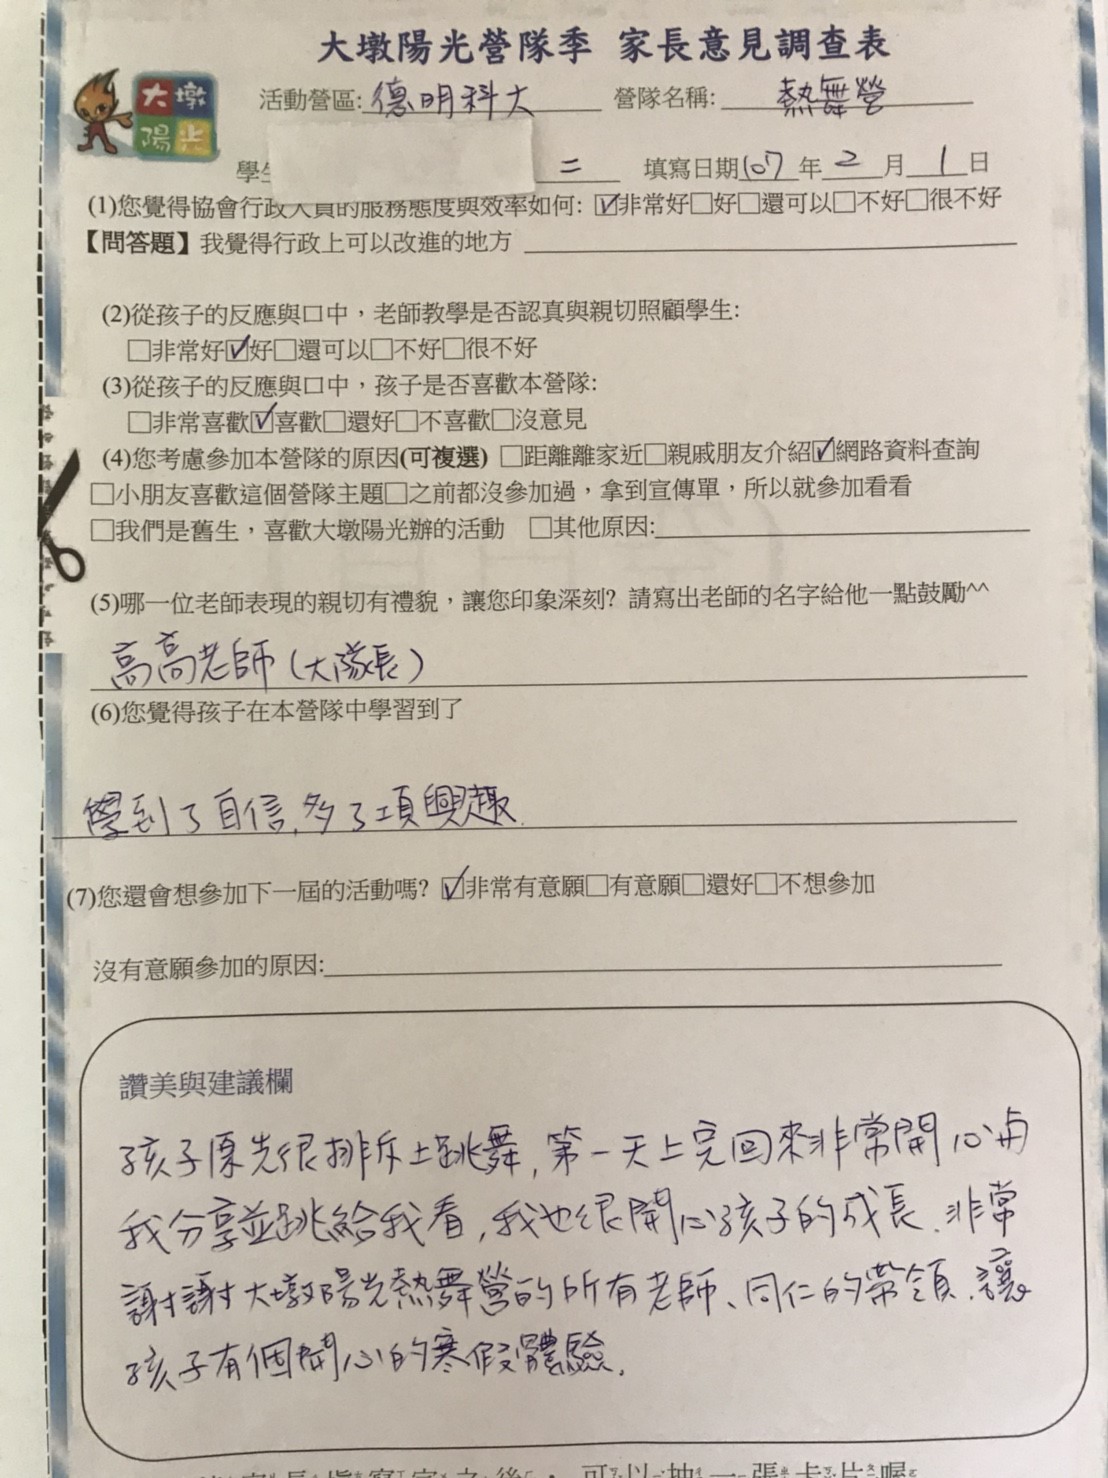 大墩陽光營隊季 家長意見調查表
大墩
陽光
活動營區:德明科大 營隊名稱: 熱舞營
二 填寫日期107年2月1日
(1)您覺得協會行政人員的服務態度與效率如何: ☑非常好□好□還可以□不好□很不好
【問答題】我覺得行政上可以改進的地方
(2)從孩子的反應與口中，老師教學是否認真與親切照顧學生:
□非常好☑好□還可以□不好□很不好
(3)從孩子的反應與口中，孩子是否喜歡本營隊:
□非常喜歡☑喜歡□還好□不喜歡□沒意見
(4)您考慮參加本營隊的原因(可複選) □距離離家近□親戚朋友介紹☑網路資料查詢
□小朋友喜歡這個營隊主題□之前都沒參加過，拿到宣傳單，所以就參加看看
□我們是舊生，喜歡大墩陽光辦的活動 □其他原因:
(5)哪一位老師表現的親切有禮貌，讓您印象深刻? 請寫出老師的名字給他一點鼓勵^^
高高老師(大隊長)
(6)您覺得孩子在本營隊中學習到了
學到了自信,多了項興趣.
(7)您還會想參加下一屆的活動嗎? ☑非常有意願□有意願□還好□不想參加
沒有意願參加的原因:
讚美與建議欄
孩子原先很排斥上跳舞,第一天上完回來非常開心與
我分享並跳給我看,我也很開心孩子的成長.非常
謝謝大墩陽光熱舞營的所有老師、同仁的帶領.讓
孩子有個開心的寒假體驗.
可以抽一張卡片喔